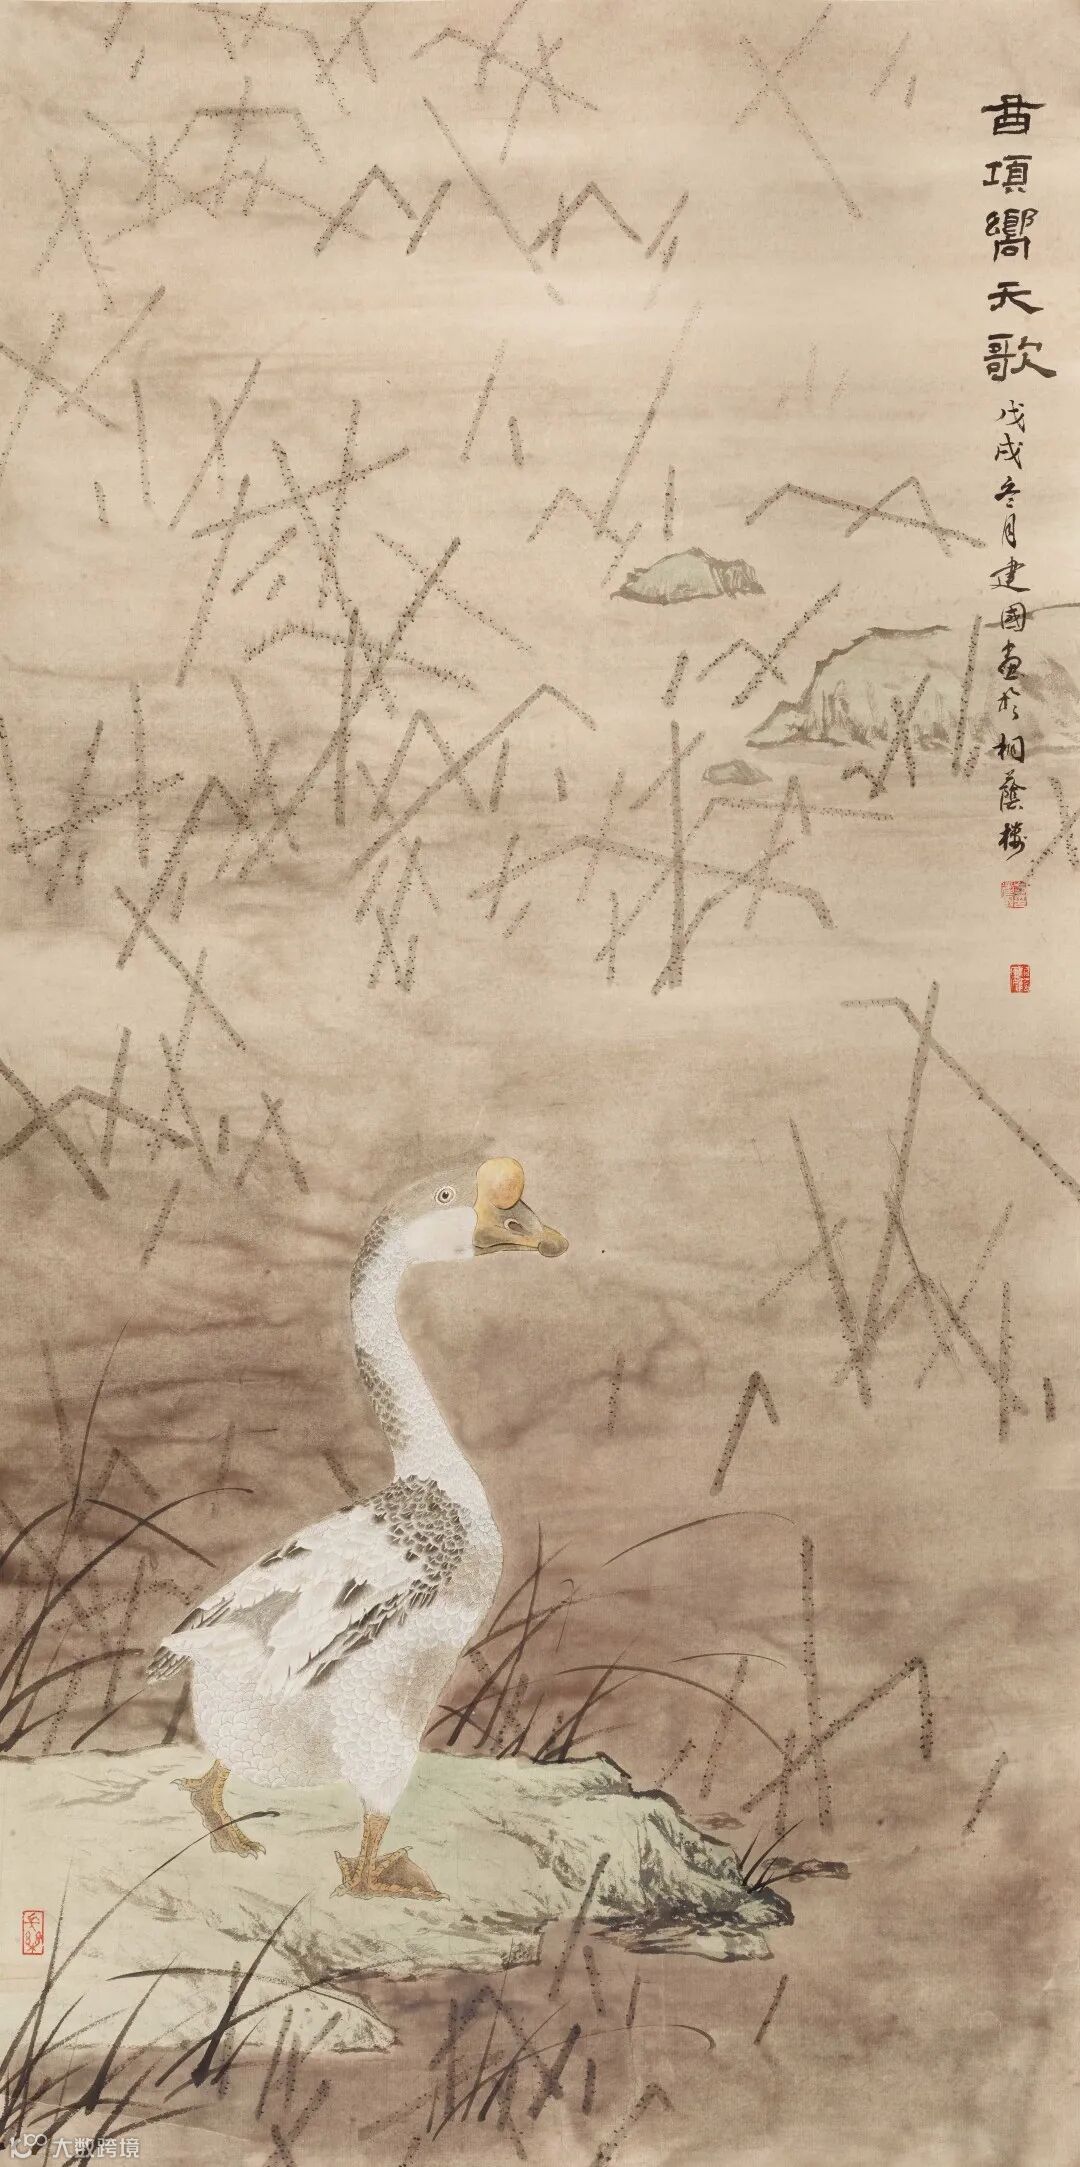 曲項嚮天歌
戊戌冬月建國畫於桐蔭樓
大数跨境